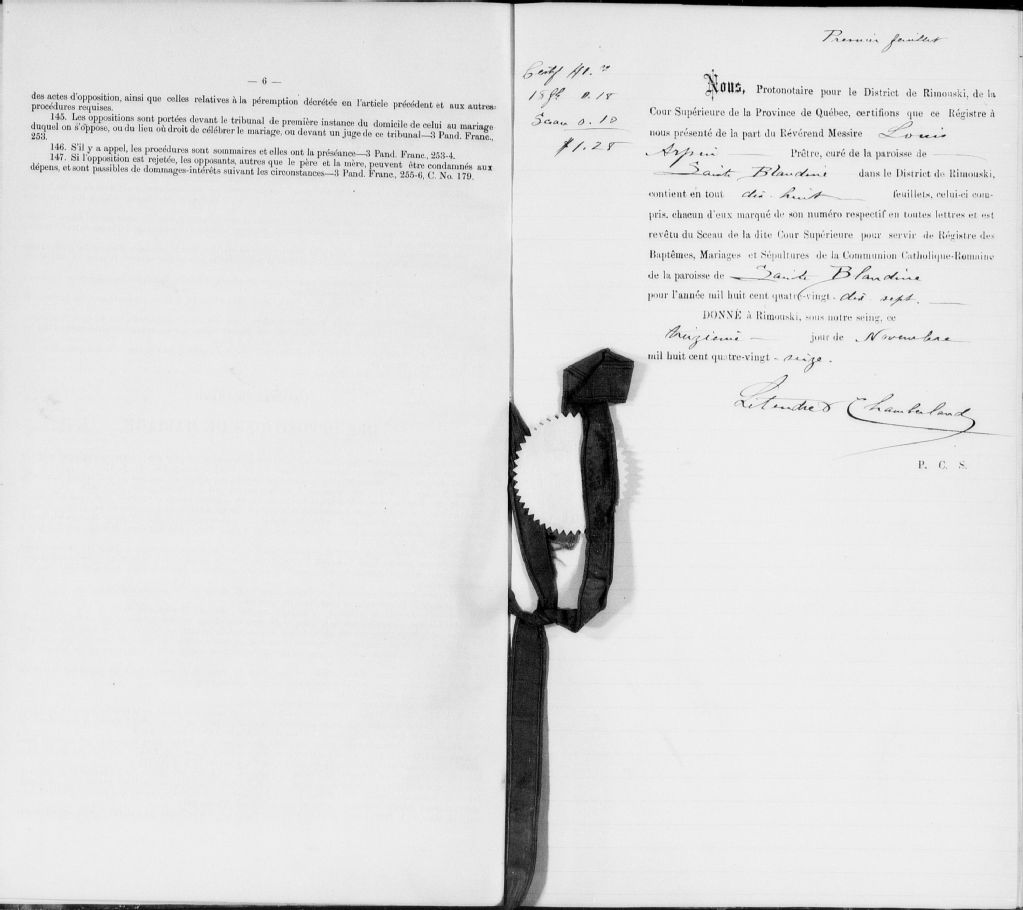 — 6 —
des actes d'opposition, ainsi que celles relatives à la péremption décrétée en l'article précédent et aux autres
procédures requises.
145. Les oppositions sont portées devant le tribunal de première instance du domicile de celui au mariage
duquel on s'oppose, ou du lieu où droit de célébrer le mariage, ou devant un juge de ce tribunal—3 Pand. Franc.,
253.
146. S'il y a appel, les procédures sont sommaires et elles ont la préséance—3 Pand. Franc., 253-4.
147. Si l'opposition est rejetée, les opposants, autres que le père et la mère, peuvent être condamnés aux
dépens, et sont passibles de dommages-intérêts suivant les circonstances—3 Pand. Franc., 255-6, C. No. 179.
Premier feuillet
Certif
18 0.18
Sceau 0.10
$1.28
Nous, Protonotaire pour le District de Rimouski, de la
Cour Supérieure de la Province de Québec, certifions que ce Régistre à
nous présenté de la part du Révérend Messire Louis
Arpin Prêtre, curé de la paroisse de
Sainte Blandine dans le District de Rimouski,
contient en tout dix-huit feuillets, celui-ci com-
pris, chacun d'eux marqué de son numéro respectif en toutes lettres et est
revêtu du Sceau de la dite Cour Supérieure pour servir de Régistre des
Baptêmes, Mariages et Sépultures de la Communion Catholique-Romaine
de la paroisse de Sainte Blandine
pour l'année mil huit cent quatre-vingt-dix sept.
DONNÉ à Rimouski, sous notre seing, ce
jour de Novembre
mil huit cent quatre-vingt-seize.
Létendre & Chamberland
P. C. S.